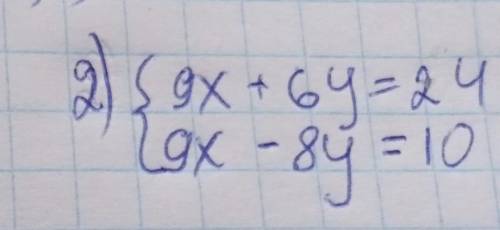 2) { 9x + 6y = 24
9x - 8y = 10